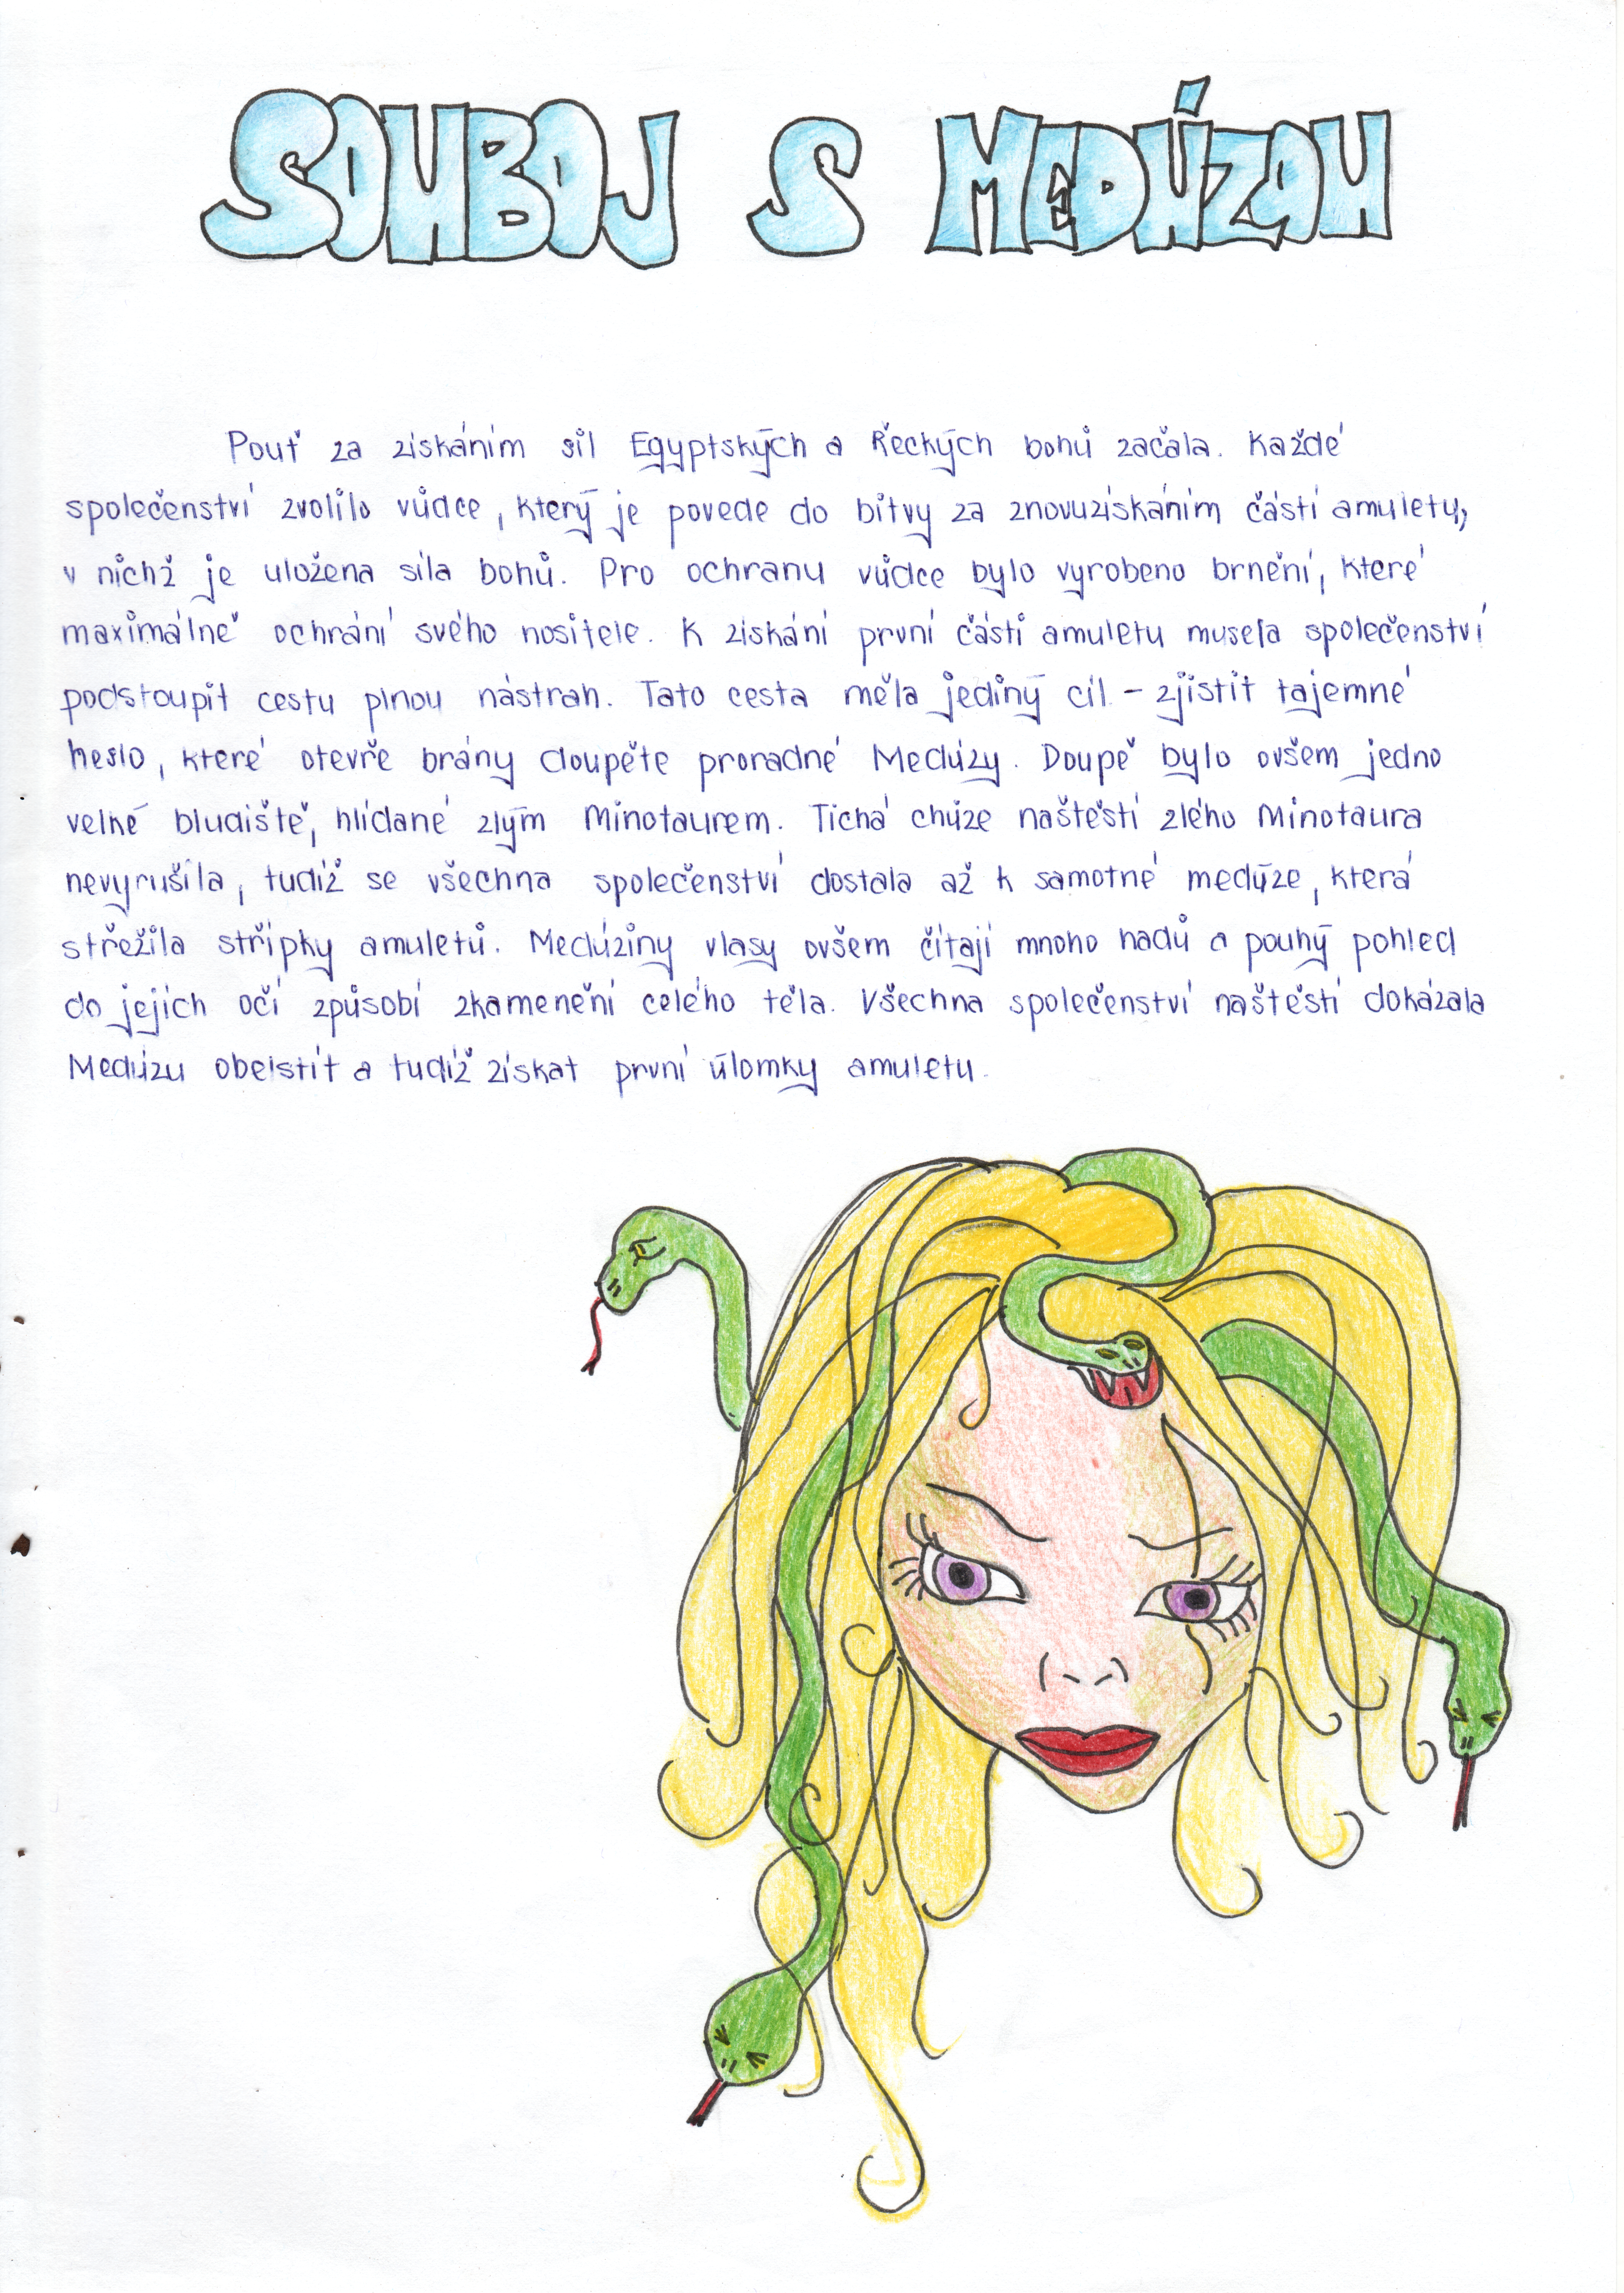 SOUBOJ S MEDÚZOU
Pouť za získáním sil Egyptských a Řeckých bohů začala. Každé
společenství zvolilo vůdce, který je povede do bitvy za znovuzískáním částí amuletu,
v nichž je uložena síla bohů. Pro ochranu vůdce bylo vyrobeno brnění, které
maximálně ochrání svého nositele. K získání první části amuletu musela společenství
podstoupit cestu plnou nástrah. Tato cesta měla jediný cíl - zjistit tajemné
heslo, které otevře brány doupěte proradné Medúzy. Doupě bylo ovšem jedno
velké bludiště, hlídané zlým Minotaurem. Tichá chůze naštěstí zlého Minotaura
nevyrušila, tudíž se všechna společenství dostala až k samotné medúze, která
střežila střípky amuletů. Medúziny vlasy ovšem čítají mnoho hadů a pouhý pohled
do jejich očí způsobí zkamenění celého těla. Všechna společenství naštěstí dokázala
Medúzu obelstít a tudíž získat první úlomky amuletu.